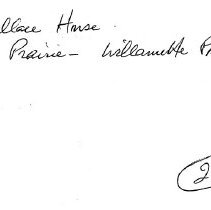 allace House.
Prairie - Willamette
2